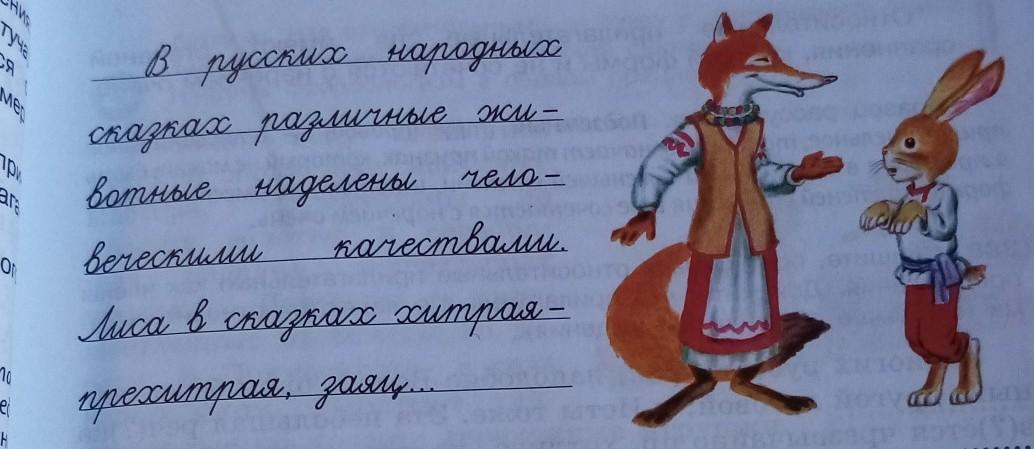 В русских народных
сказках различные жи-
вотные наделены чело-
веческими качествами.
Лиса в сказках хитрая-
прехитрая, заяц...